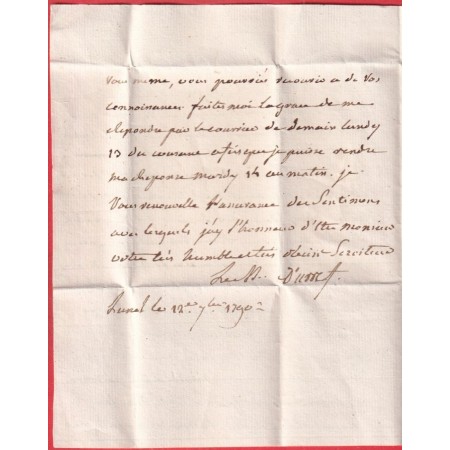 vous meme, vous pourriés recourir a de vos
connoissances faites moi la grace de me
repondre par le courrier de demain lundy
13 du courant afin que je puisse rendre
ma reponse mardy 14 au matin. je
vous renouvelle l'assurance des sentimens
avec lesquels j'ay l'honneur d'etre monsieur
votre très humble et très obeist serviteur
Lunel le 12e 7bre 1790